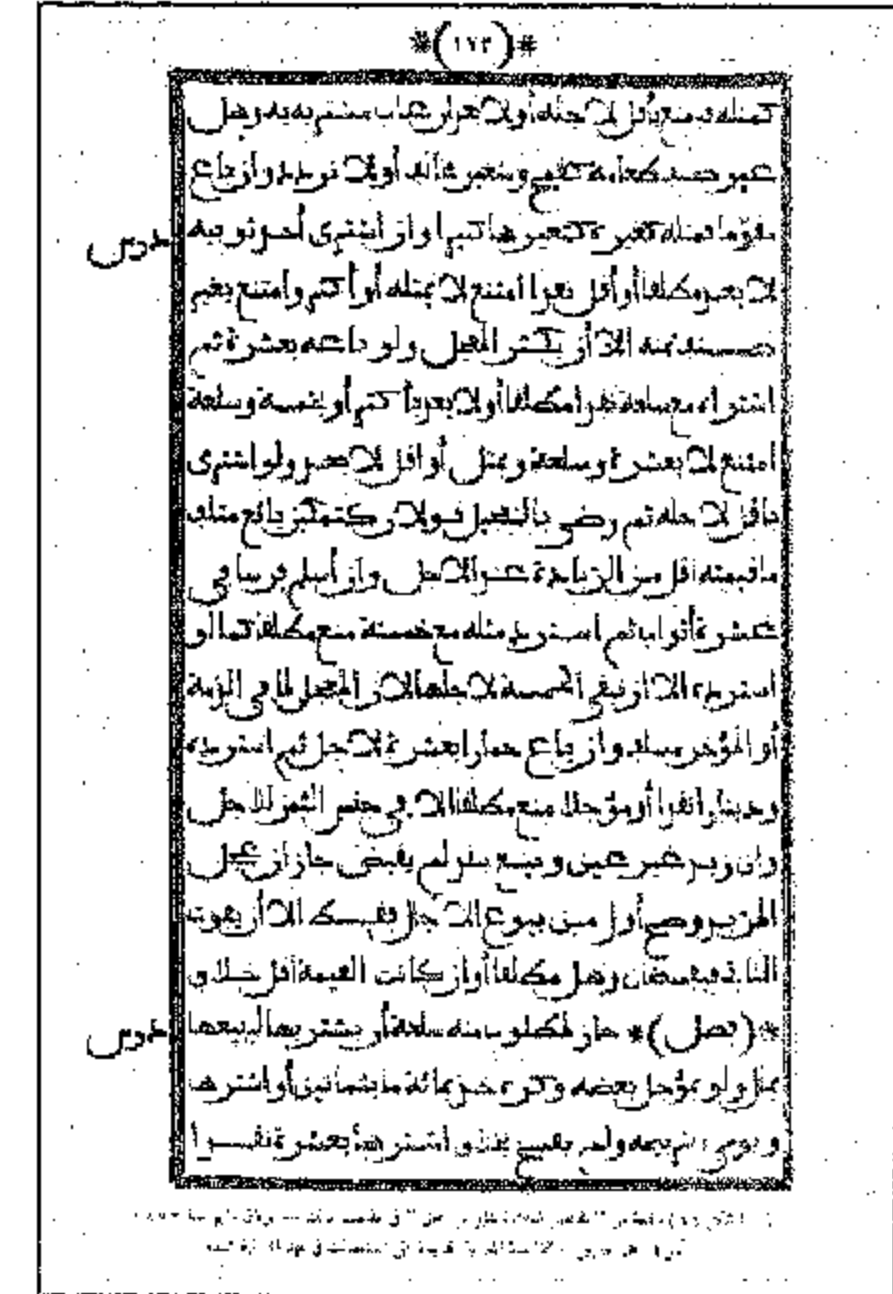 *(١٧٣)*
كمثله فيمنع بأقل لأجله أو لأبعد إن غاب مشتريه به وهل
غير صنف طعامه كقمح وشعير مخالف أو لا تردد وإن باع
مقوما فمثله كغيره كتغيرها كثيرا وإن اشترى أحد ثوبيه
درس
لأبعد مطلقا أو أقل نقدا امتنع لا بمثله أو أكثر وامتنع بغير
صنف ثمنه إلا أن يكثر المعجل ولو باعه بعشرة ثم
اشتراه مع سلعة نقدا مطلقا أو لأبعد بأكثر أو بخمسة وسلعة
امتنع لا بعشرة وسلعة وبمثل أو أقل لأبعد ولو اشترى
بأقل لأجله ثم رضي بالتعجيل قولان كتمكين بائع متلف
ما قيمته أقل من الزيادة عند الأجل وإن أسلم فرسا في
عشرة أثواب ثم استرد مثله مع خمسة منع مطلقا كما لو
استرده إلا أن تبقى الخمسة لأجلها لأن المعجل لما في الذمة
أو المؤخر مسلف وإن باع حمارا بعشرة لأجل ثم استرده
ودينارا نقدا أو مؤجلا منع مطلقا إلا في جنس الثمن للأجل
وإن زيد غير عين وبيع بنقد لم يقبض جاز إن عجل
المزيد وصح أول من بيوع الآجال فقط إلا أن يفوت
الثاني فيفسخان وهل مطلقا أو إن كانت القيمة أقل خلاف
*(فصل)* جاز لمطلوب منه سلعة أن يشتريها ليبيعها
درس
بمال ولو بمؤجل بعضه وكره خذ بمائة ما بثمانين أو اشترها
ويومئ لتربيحه ولم يفسخ بخلاف اشترها بعشرة نقدا